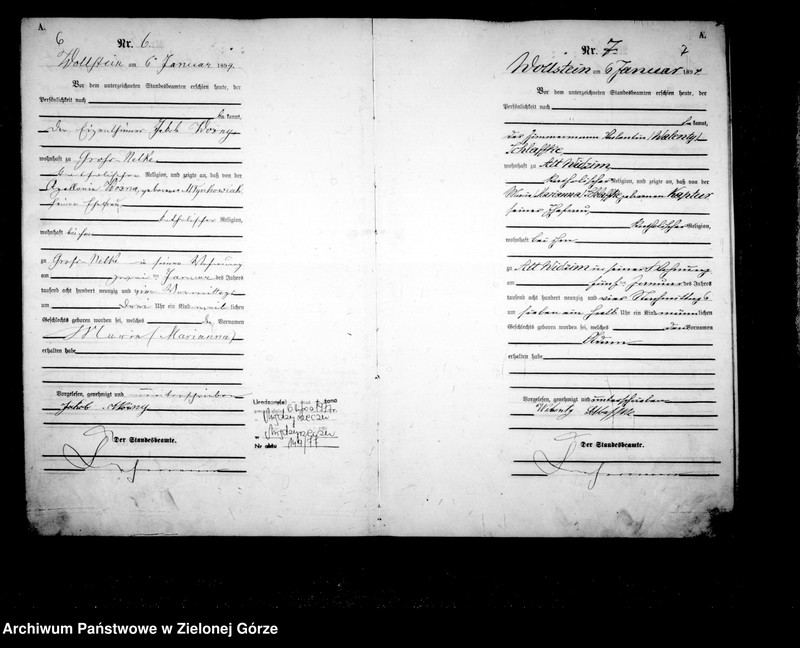 A.
6
Nr. 6.
Wollstein am 6 Januar 1894.
Vor dem unterzeichneten Standesbeamten erschien heute, der
Persönlichkeit nach
bekannt,
der Eigenthümer Jakob Worny
wohnhaft zu Groß-Nelke
katholischer Religion, und zeigte an, daß von der
geborenen
seiner Ehefrau
katholischer Religion,
wohnhaft bei ihm
zu Groß-Nelke in seiner Wohnung
am zweiten Januar des Jahres
tausend acht hundert neunzig und vier Vormittags
um drei Uhr ein Kind weiblichen
Geschlechts geboren worden sei, welches den Vornamen
Maria (Marianna)
erhalten habe
Vorgelesen, genehmigt und unterschrieben
Jakob
Der Standesbeamte.
6 lipca 1977 r.
Nr aktu 149/77
A.
7
Nr. 7
Wollstein am 6 Januar 1894
Vor dem unterzeichneten Standesbeamten erschien heute, der
Persönlichkeit nach
bekannt,
der Zimmermann Valentin (Walenty)
Schlaffke
wohnhaft zu Alt Widzim
katholischer Religion, und zeigte an, daß von der
Maria (Marianna) Schlaffke geborenen
seiner Ehefrau,
katholischer Religion,
wohnhaft bei ihm
zu Alt Widzim in seiner Wohnung
am fünften Januar des Jahres
tausend acht hundert neunzig und vier Nachmittags
um sieben ein halb Uhr ein Kind männlichen
Geschlechts geboren worden sei, welches den Vornamen
erhalten habe
Vorgelesen, genehmigt und unterschrieben
Walenty
Der Standesbeamte.
Archiwum Państwowe w Zielonej Górze